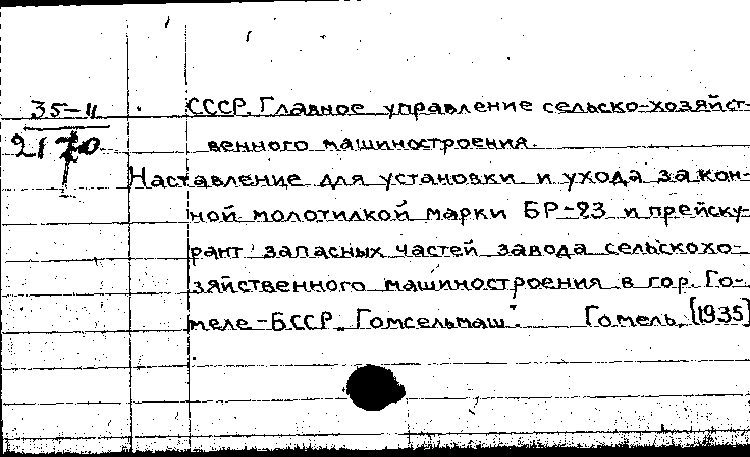 35-11
СССР. Главное управление сельско-хозяйст-
2170
венного машиностроения.
Наставление для установки и ухода за кон-
ной молотилкой марки БР-23 и прейску-
рант запасных частей завода сельскохо-
зяйственного машиностроения в гор. Го-
меле-БССР „Гомсельмаш". Гомель, [1935]